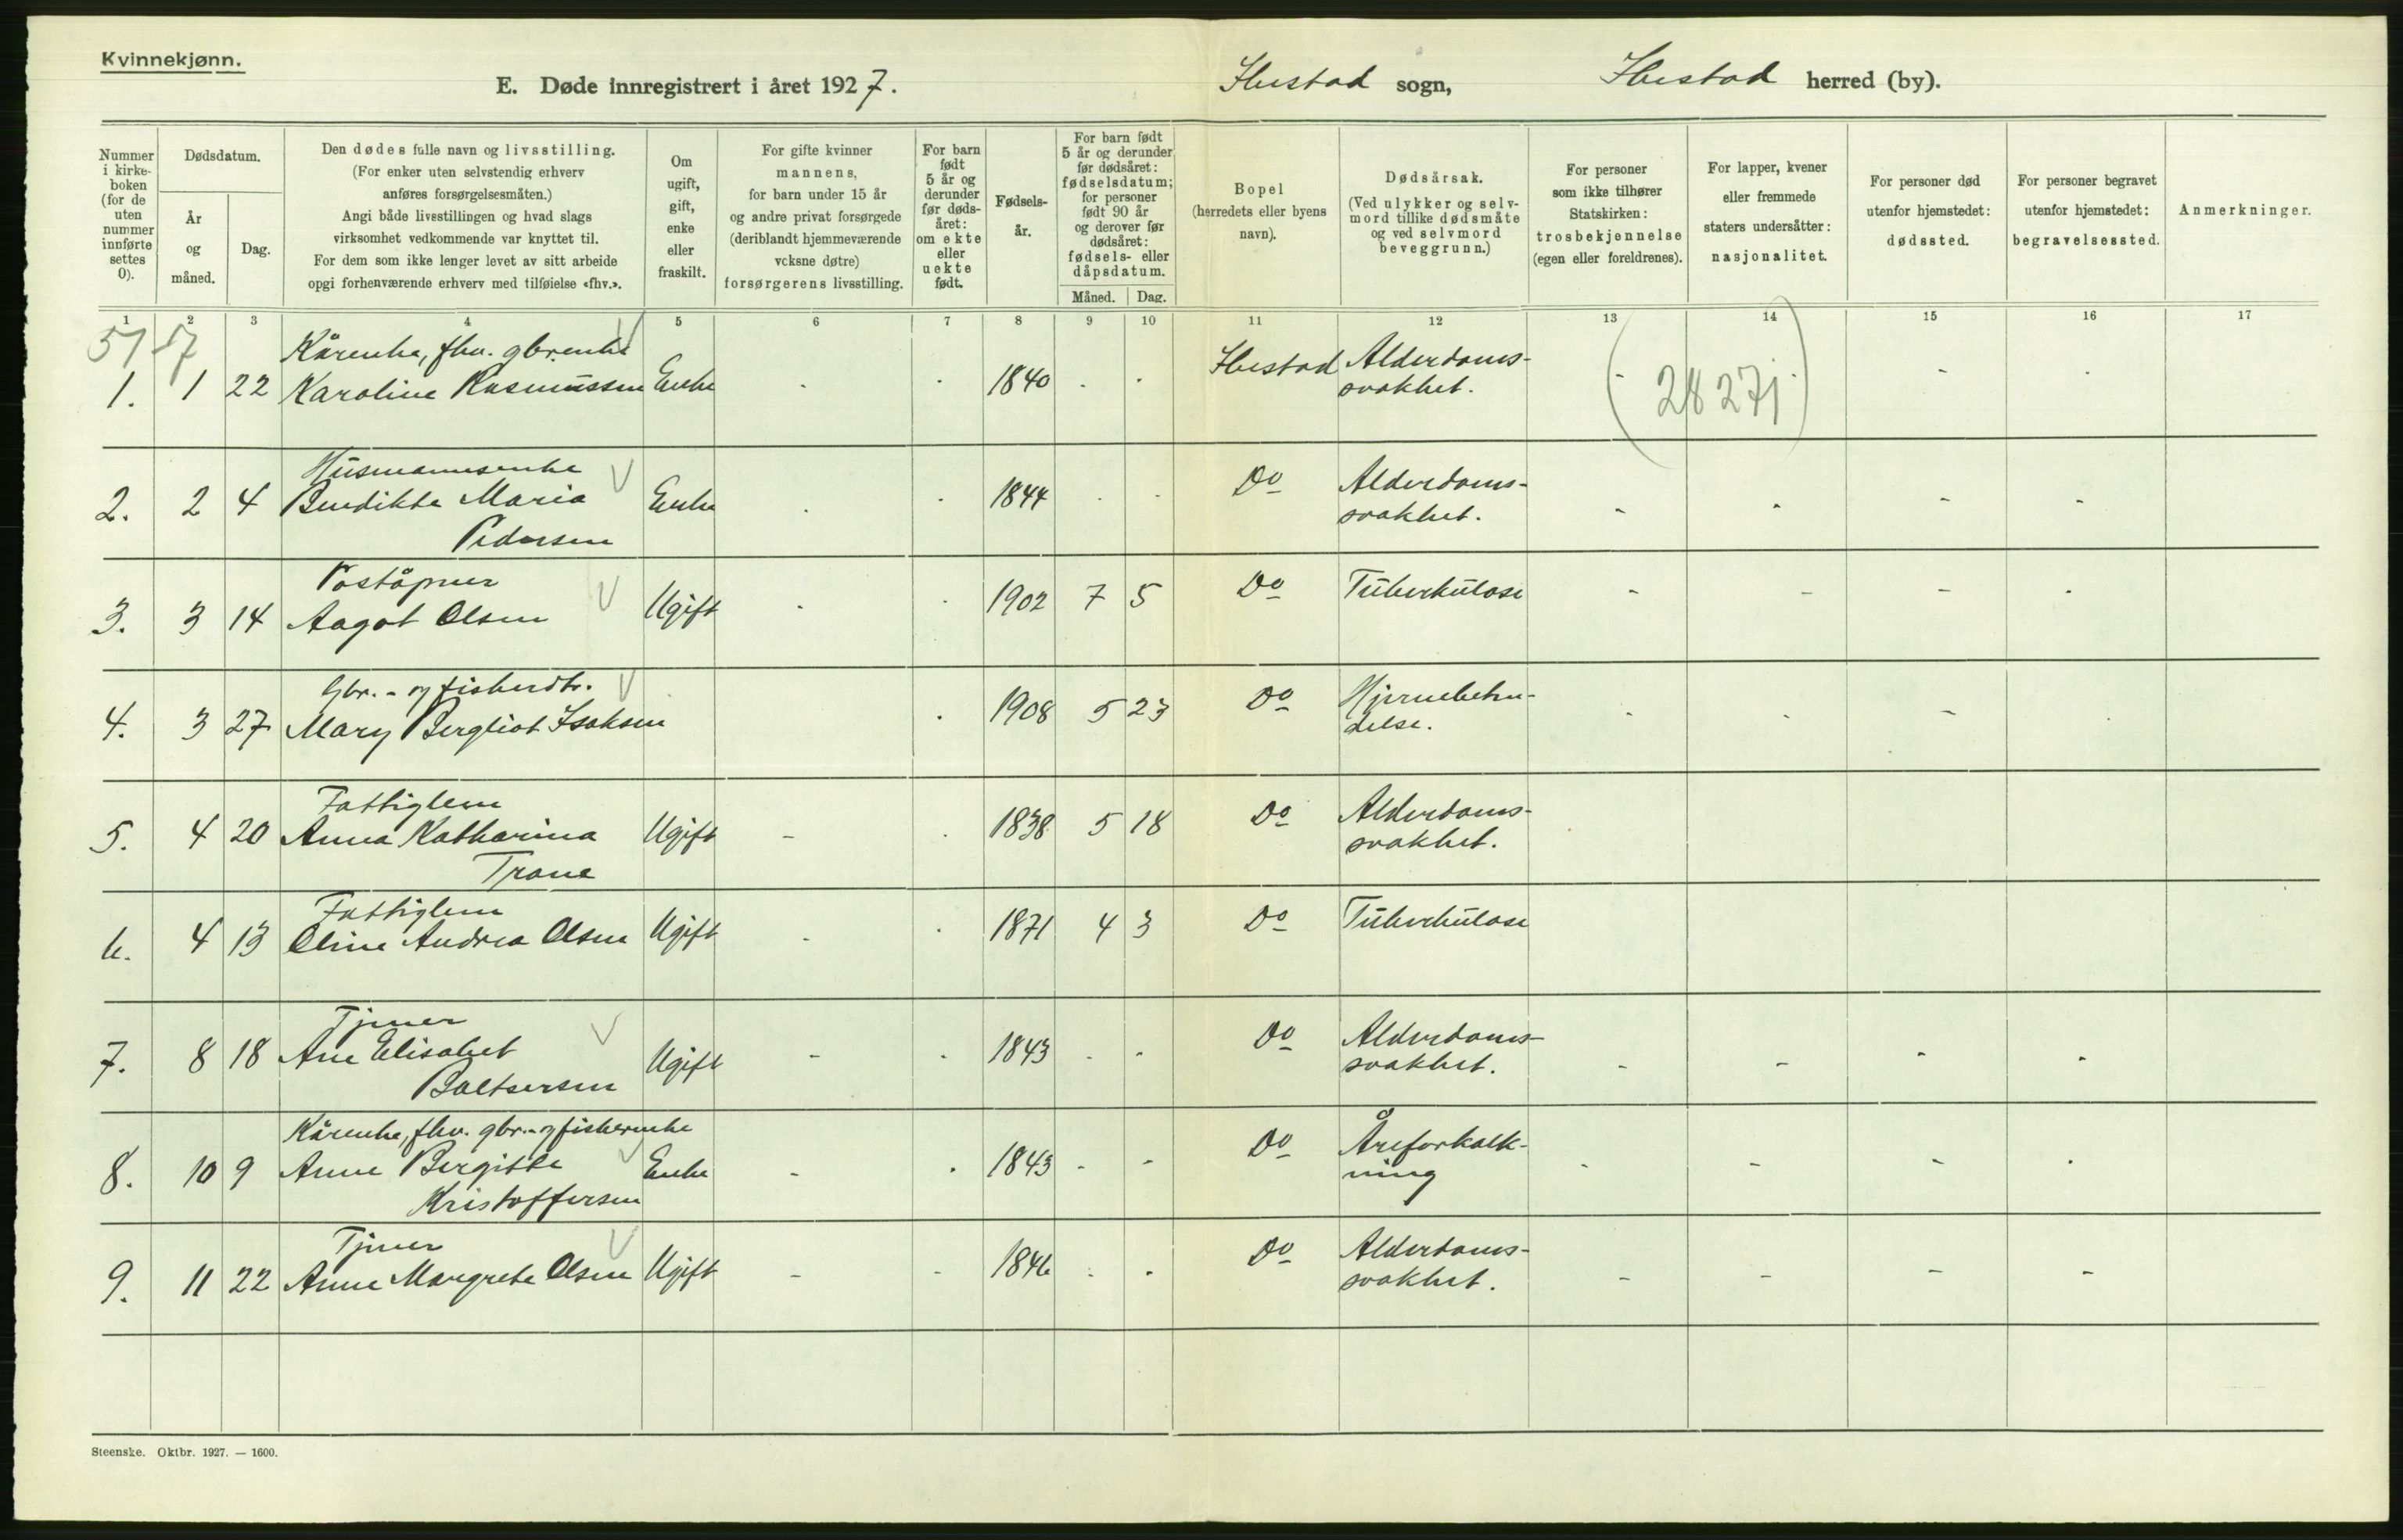 Kvinnekjønn.
E. Døde innregistrert i året 1927.
Hustad sogn, Hustad herred (by).
Nummer i kirkeboken (for de uten nummer innførte settes 0).
Dødsdatum.
År og måned.
Dag.
Den dødes fulle navn og livsstilling.
(For enker uten selvstendig erhverv
anføres forsørgelsesmåten.)
Angi både livsstillingen og hvad slags
virksomhet vedkommende var knyttet til.
For dem som ikke lenger levet av sitt arbeide
opgi forhenværende erhverv med tilføielse «fhv.».
Om
ugift,
gift,
enke
eller
fraskilt.
For gifte kvinner
mannens,
for barn under 15 år
og andre privat forsørgede
(deriblandt hjemmeværende
voksne døtre)
forsørgerens livsstilling.
For barn
født
5 år og
derunder
før døds-
året:
om ekte
eller
uekte
født.
Fødsels-
år.
For barn født
5 år og derunder
før dødsåret:
fødselsdatum;
for personer
født 90 år
og derover før
dødsåret:
fødsels- eller
dåpsdatum.
Måned. Dag.
Bopel
(herredets eller byens
navn).
Dødsårsak.
(Ved ulykker og selv-
mord tillike dødsmåte
og ved selvmord
beveggrunn.)
For personer
som ikke tilhører
Statskirken:
trosbekjennelse
(egen eller foreldrenes).
For lapper, kvener
eller fremmede
staters undersåtter:
nasjonalitet.
For personer død
utenfor hjemstedet:
dødssted.
For personer begravet
utenfor hjemstedet:
begravelsessted.
Anmerkninger.
1 2 3 4 5 6 7 8 9 10 11 12 13 14 15 16 17
Kårenke, fhv. gbr.enke
1. 1 22 Karoline Rasmussen Enke - - 1840 - - Hustad Alderdoms-
svakhet.
(28271)
Husmannsenke
2. 2 4 Bendikte Maria Enke - - 1844 - - Do Alderdoms-
Pedersen svakhet.
Poståpner
3. 3 14 Aagot Olsen Ugift - - 1902 7 5 Do Tuberkulose - - - -
Gbr.- og fiskerdtr.
4. 3 27 Mary Bergliot Isaksen - 1908 5 23 Do Hjernebeten-
delse.
Fattiglem
5. 4 20 Anna Katharina Ugift - - 1838 5 18 Do Alderdoms-
Trane svakhet.
Fattiglem
6. 4 13 Oline Andrea Olsen Ugift - - 1871 4 3 Do Tuberkulose
Tjener
7. 8 18 Ane Elisabet Ugift - - 1843 - - Do Alderdoms-
Baltsersen svakhet. - - - -
Kårenke, fhv. gbr.- og fiskerenke
8. 10 9 Anne Bergitte Enke - - 1843 - - Do Åreforkalk-
Kristoffersen ning - - - -
Tjener
9. 11 22 Anne Margrete Olsen Ugift - - 1846 - - Do Alderdoms-
svakhet. - - - -
Steenske. Oktbr. 1927. — 1600.